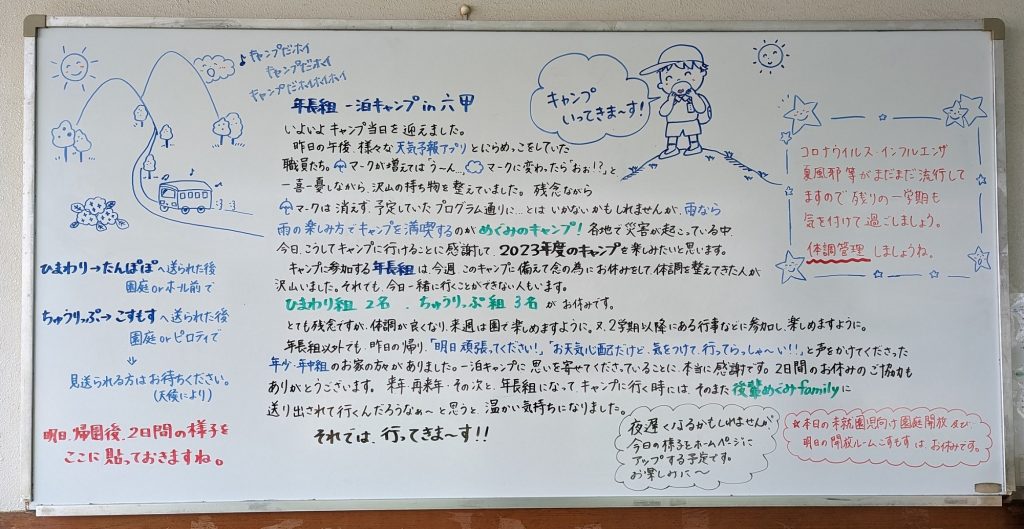 ♪キャンプだホイ
キャンプだホイ
キャンプだホイホイホイ
キャンプ
いってきま〜す!
年長組 一泊キャンプ in 六甲
いよいよ キャンプ当日を迎えました。
昨日の午後、様々な天気予報アプリとにらめっこをしていた
職員たち。☂マークが増えては「うーん…」、☁マークに変わったら「おぉ!!」と
一喜一憂しながら、沢山の持ち物を整えていました。残念ながら
☂マークは消えず、予定していたプログラム通りに…とは いかないかもしれませんが、雨なら
雨の楽しみ方でキャンプを満喫するのがめぐみのキャンプ!各地で災害が起こっている中、
今日、こうしてキャンプに行けることに感謝して、2023年度のキャンプを楽しみたいと思います。
キャンプに参加する年長組は、今週 このキャンプに備えて念の為にお休みをして体調を整えてきた人が
沢山いました。それでも、今日一緒に行くことができない人もいます。
ひまわり組 2名、ちゅうりっぷ組 3名 がお休みです。
とても残念ですが、体調が良くなり、来週は園で楽しめますように。又、2学期以降にある行事などに参加し、楽しめますように。
年長組以外でも、昨日の帰り、「明日頑張ってください!」「お天気心配だけど、気をつけて、行ってらっしゃ〜い!!」と声をかけてくださった
年少・年中組のお家の方々がありました。一泊キャンプに思いを寄せてくださっていることに、本当に感謝です。2日間のお休みのご協力も
ありがとうございます。来年、再来年・その次と、年長組になって、キャンプに行く時には、そのまた後輩めぐみfamilyに
送り出されて行くんだろうなぁ〜と思うと、温かい気持ちになりました。
それでは、行ってきま〜す!!
ひまわり→たんぽぽへ送られた後
園庭orホール前で
ちゅうりっぷ→こすもすへ送られた後
園庭orピロティで
⇓
見送られる方はお待ちください。
(天候により)
明日、帰園後、2日間の様子を
ここに貼っておきますね。
コロナウイルス・インフルエンザ
夏風邪等がまだまだ流行して
ますので残りの一学期も
気を付けて過ごしましょう。
体調管理しましょうね。
夜遅くなるかもしれませんが、
今日の様子をホームページに
アップする予定です。
お楽しみに〜
☆本日の未就園児向け園庭開放及び、
明日の開放ルームこすもすは、お休みです。